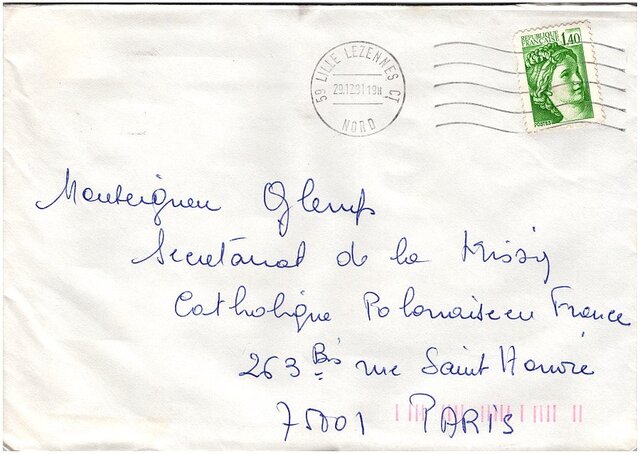 59 LILLE LEZENNES CT
29.12.81 19H
NORD
REPUBLIQUE
FRANCAISE
1,40
POSTES
Monseigneur Glemp
Secretariat de la Mission
Catholique Polonaise en France
263 Bis rue Saint Honoré
75001 PARIS